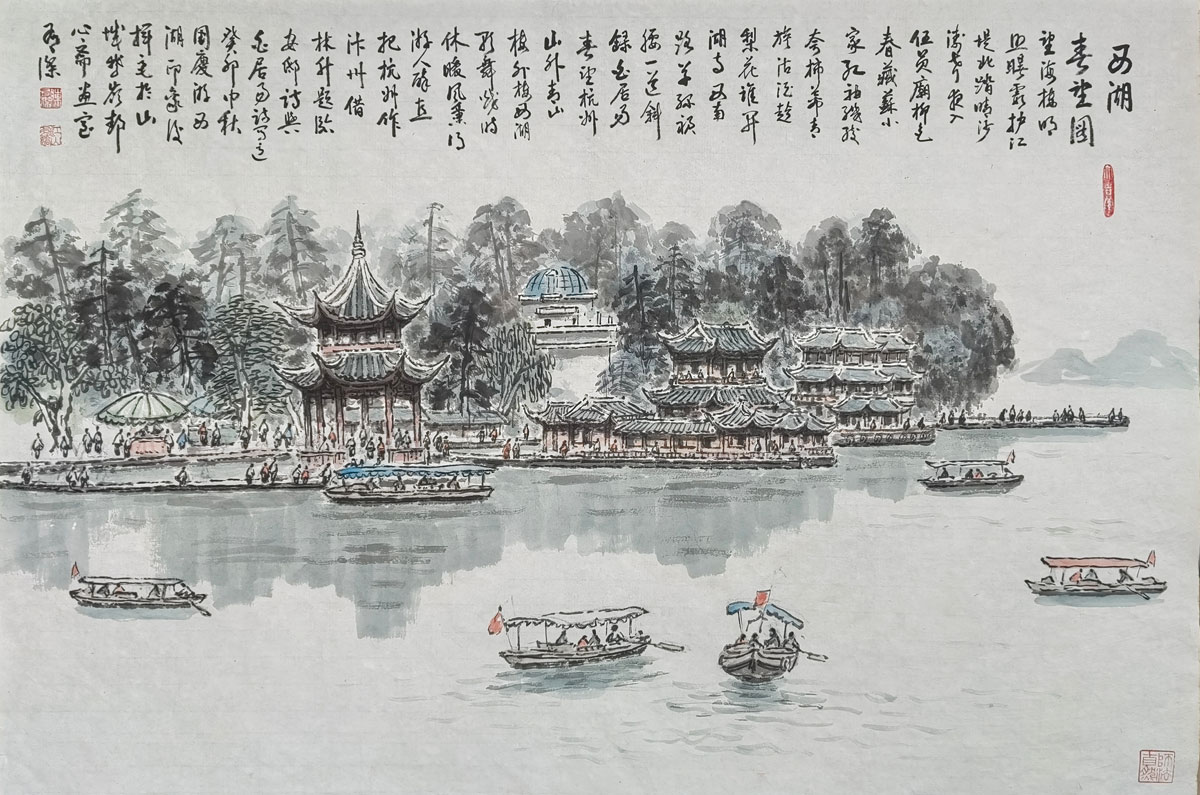 西湖
春望图
望海楼明
照曙霞护江
堤北踏晴沙
涛声夜入
伍员庙柳色
春藏苏小
家红袖织绫
夸柿蒂青
旗沽酒趁
梨花谁开
湖寺西南
路草绿裙
腰一道斜
录白居易
春望杭州
山外青山
楼外楼西湖
歌舞几时
休暖风熏得
游人醉直
把杭州作
汴州借
林升题临
安邸诗与
白居易诗写之
癸卯中秋
国庆游西
湖印象后
挥毫于山
城华岩邨
心斋画室